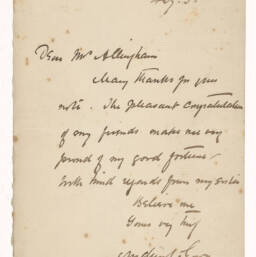 Dear Mr Allingham
Many thanks for your
note. The pleasant congratulations
of my friends makes me very
proud of my good fortune.
With kind regards from my sister
Believe me
Yours very truly